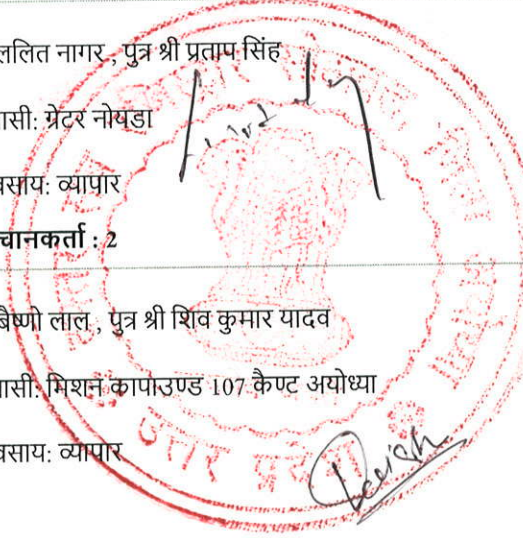 ललित नागर , पुत्र श्री प्रताप सिंह
ासी: ग्रेटर नोयडा
वसाय: व्यापार
चानकर्ता : 2
बैष्णो लाल , पुत्र श्री शिव कुमार यादव
ासी: मिशन कापाउण्ड 107 कैण्ट अयोध्या
वसाय: व्यापार
उत्तर प्रदेश